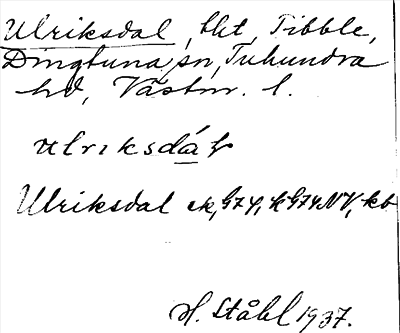 Ulriksdal, bht, Tibble,
Dingtuna sn, Tuhundra
hd, Västm. l.
ulriksdál
Ulriksdal ek, G74, k G74NV, kb
H. Ståhl 1937.